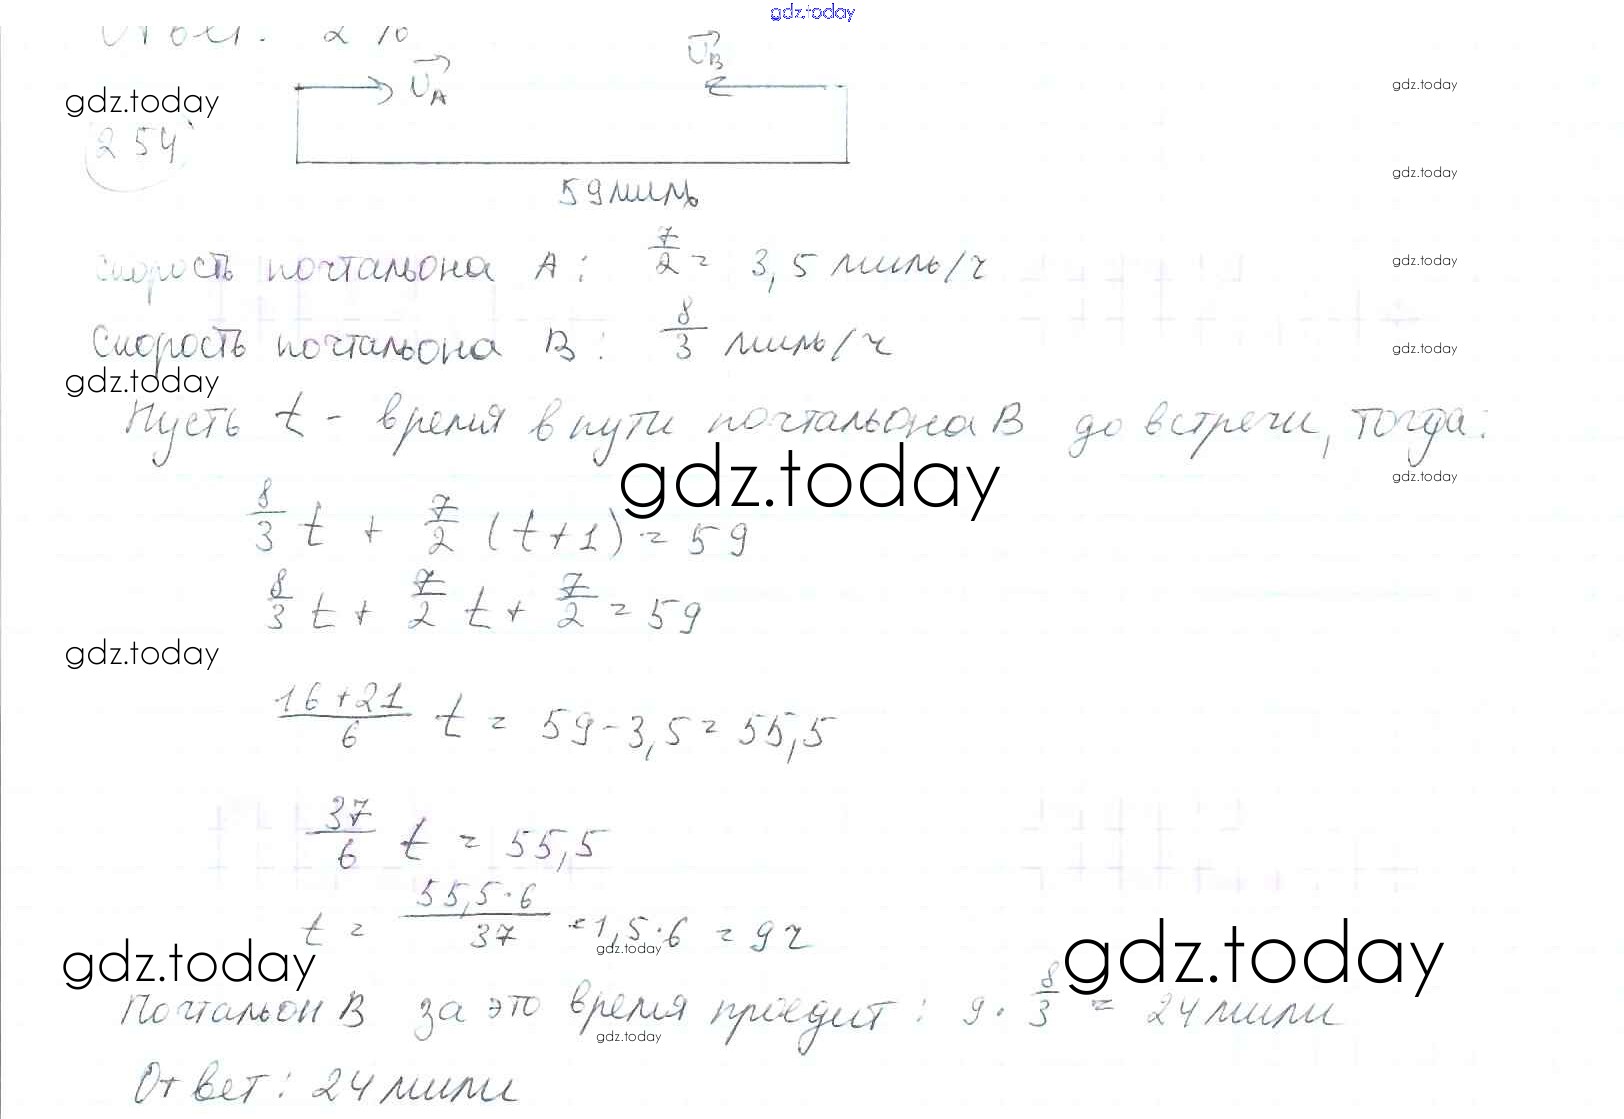 gdz.today
Ответ: 210
U⃗A U⃗B
gdz.today gdz.today
254
gdz.today
59 миль
Скорость почтальона А: 7/2 = 3,5 миль/ч
gdz.today
Скорость почтальона В: 8/3 миль/ч
gdz.today
gdz.today
Пусть t - время в пути почтальона В до встречи, тогда:
gdz.today
gdz.today
8/3 t + 7/2 (t+1) = 59
8/3 t + 7/2 t + 7/2 = 59
gdz.today
16+21/6 t = 59-3,5 = 55,5
37/6 t = 55,5
t = 55,5·6/37 = 1,5·6 = 9ч
gdz.today
gdz.today
gdz.today
Почтальон В за это время проедит: 9·8/3 = 24 мили
gdz.today
Ответ: 24 мили